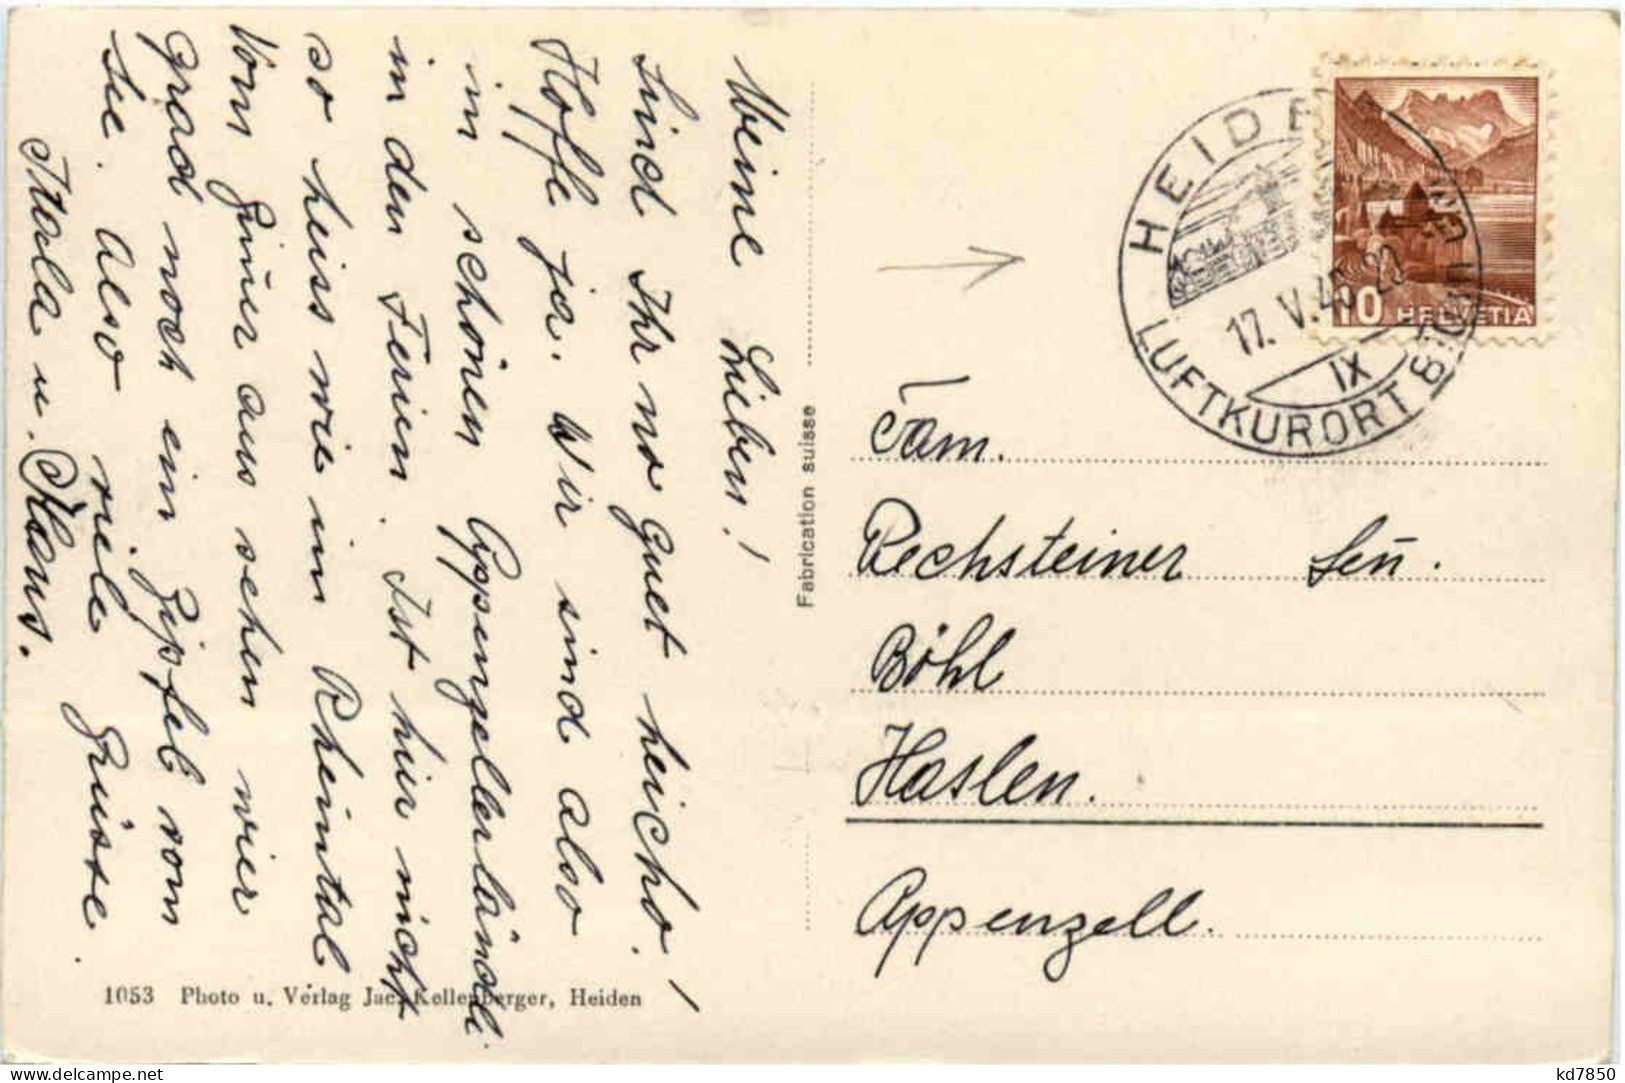 Meine Lieben!
Sind Ihr no guet heicho!
Hoffe ja. Wir sind also
in schönen Appenzellerländli
in den Ferien. Ist hier nicht
so heiss wie im Rheintal.
Vom Zimer aus sehen wir
grad noch ein Zipfel vom
See. Also viele Grüsse.
u. Klaus.
1053 Photo u. Verlag Jac. Kellenberger, Heiden
Fabrication suisse
HEIDEN
17. V. 4
IX
LUFTKURORT
10 HELVETIA
Fam.
Rechsteiner Sen.
Böhl
Haslen.
Appenzell.
kd7850